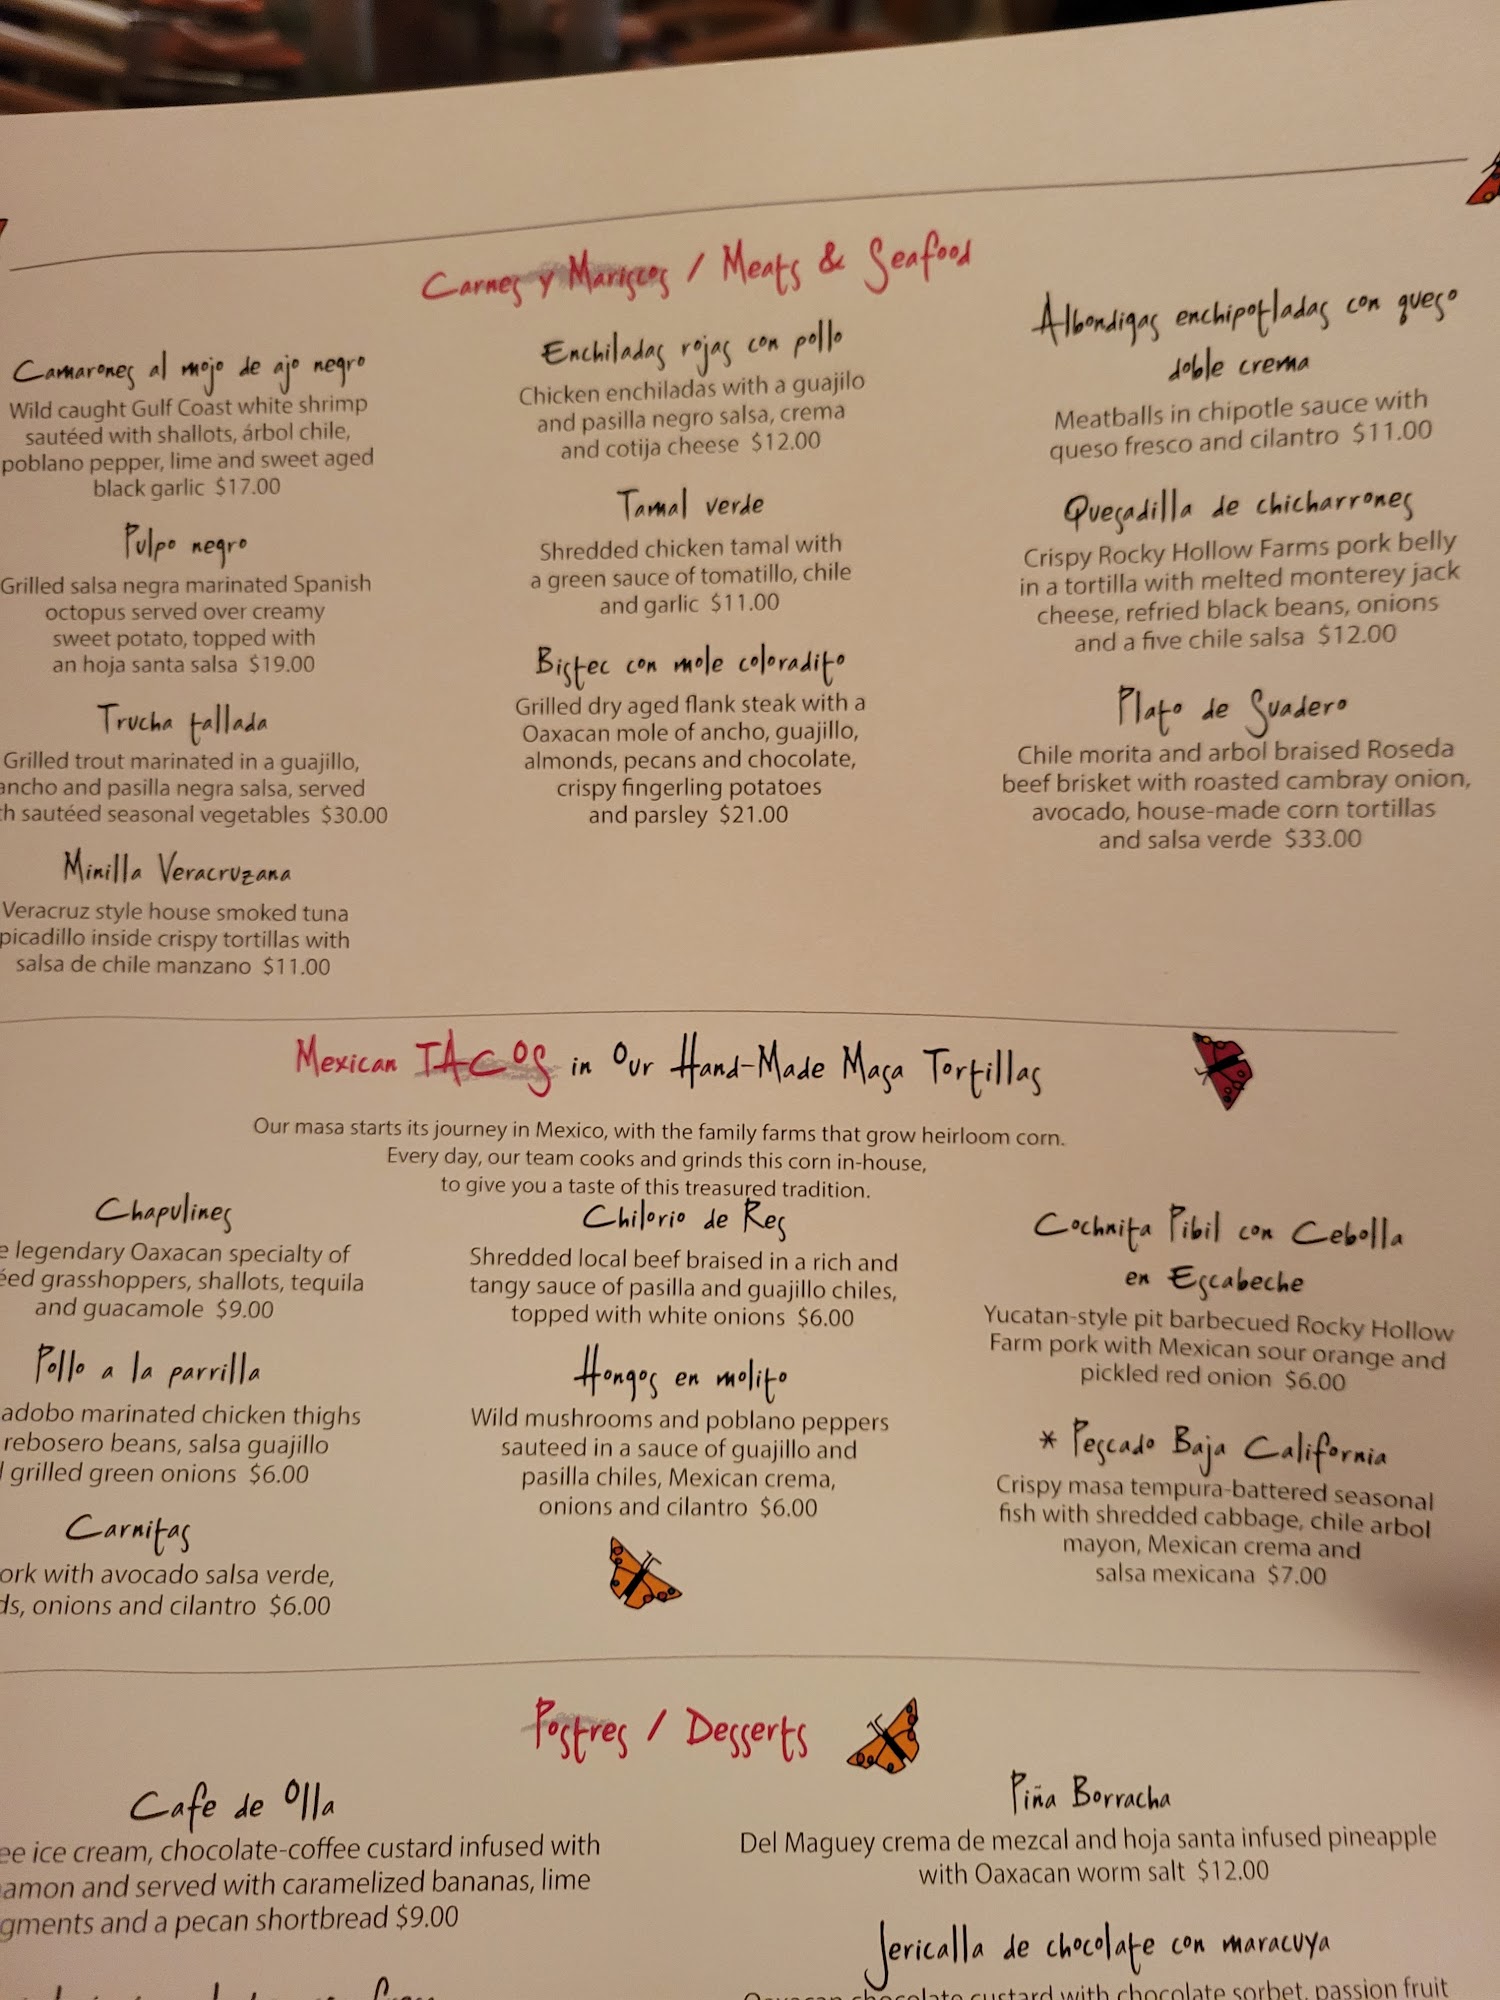 Carnes y Mariscos / Meats & Seafood
Camarones al mojo de ajo negro
Wild caught Gulf Coast white shrimp
sautéed with shallots, árbol chile,
poblano pepper, lime and sweet aged
black garlic $17.00
Pulpo negro
Grilled salsa negra marinated Spanish
octopus served over creamy
sweet potato, topped with
an hoja santa salsa $19.00
Trucha tallada
Grilled trout marinated in a guajillo,
ancho and pasilla negra salsa, served
sautéed seasonal vegetables $30.00
Minilla Veracruzana
Veracruz style house smoked tuna
picadillo inside crispy tortillas with
salsa de chile manzano $11.00
Enchiladas rojas con pollo
Chicken enchiladas with a guajilo
and pasilla negro salsa, crema
and cotija cheese $12.00
Tamal verde
Shredded chicken tamal with
a green sauce of tomatillo, chile
and garlic $11.00
Bistec con mole coloradito
Grilled dry aged flank steak with a
Oaxacan mole of ancho, guajillo,
almonds, pecans and chocolate,
crispy fingerling potatoes
and parsley $21.00
Albondigas enchipotladas con queso
doble crema
Meatballs in chipotle sauce with
queso fresco and cilantro $11.00
Quesadilla de chicharrones
Crispy Rocky Hollow Farms pork belly
in a tortilla with melted monterey jack
cheese, refried black beans, onions
and a five chile salsa $12.00
Plato de Suadero
Chile morita and arbol braised Roseda
beef brisket with roasted cambray onion,
avocado, house-made corn tortillas
and salsa verde $33.00
Mexican TACOS in Our Hand-Made Masa Tortillas
Our masa starts its journey in Mexico, with the family farms that grow heirloom corn.
Every day, our team cooks and grinds this corn in-house,
to give you a taste of this treasured tradition.
Chapulines
legendary Oaxacan specialty of
grasshoppers, shallots, tequila
and guacamole $9.00
Pollo a la parrilla
adobo marinated chicken thighs
rebosero beans, salsa guajillo
grilled green onions $6.00
Carnitas
with avocado salsa verde,
onions and cilantro $6.00
Chilorio de Res
Shredded local beef braised in a rich and
tangy sauce of pasilla and guajillo chiles,
topped with white onions $6.00
Hongos en molito
Wild mushrooms and poblano peppers
sauteed in a sauce of guajillo and
pasilla chiles, Mexican crema,
onions and cilantro $6.00
Cochnita Pibil con Cebolla
en Escabeche
Yucatan-style pit barbecued Rocky Hollow
Farm pork with Mexican sour orange and
pickled red onion $6.00
* Pescado Baja California
Crispy masa tempura-battered seasonal
fish with shredded cabbage, chile arbol
mayon, Mexican crema and
salsa mexicana $7.00
Postres / Desserts
Cafe de Olla
ice cream, chocolate-coffee custard infused with
and served with caramelized bananas, lime
and a pecan shortbread $9.00
Piña Borracha
Del Maguey crema de mezcal and hoja santa infused pineapple
with Oaxacan worm salt $12.00
Jericalla de chocolate con maracuya
chocolate custard with chocolate sorbet, passion fruit